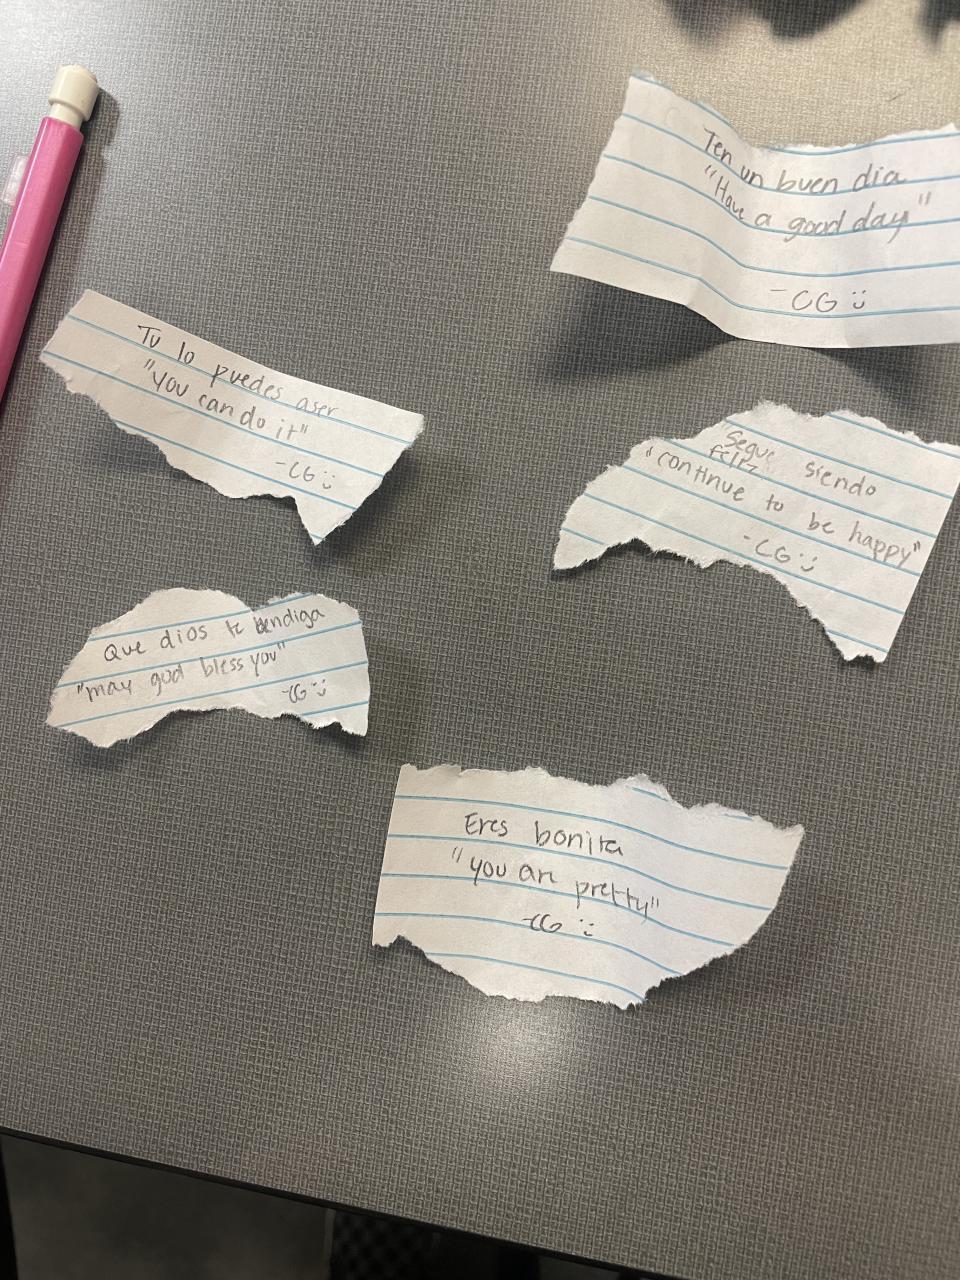 Ten un buen dia
"Have a good day"
- CG :)
Tu lo puedes aser
"you can do it"
- CG :)
"Segue siendo
feliz
"continue to be happy"
- CG :)
Que dios te bendiga
"may god bless you"
- CG :)
Eres bonita
"you are pretty"
- CG :)